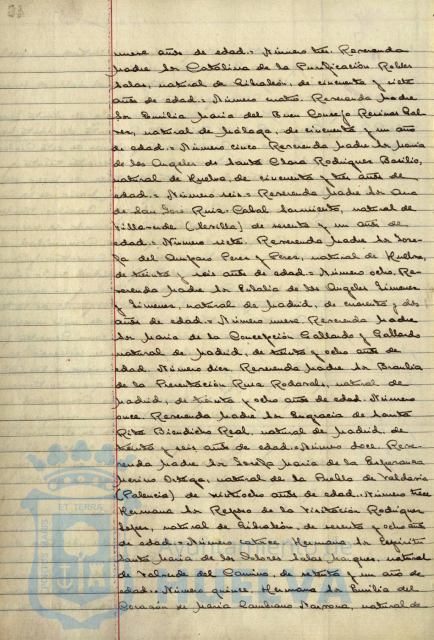 nueve años de edad.= Número tres. Reverenda
Madre Sor Catalina de la Purificación Robles
Salas, natural de Gibraleón, de cincuenta y siete
años de edad.= Número cuatro. Reverenda Madre
Sor Emilia María del Buen Consejo Recines
natural de Málaga, de cincuenta y un año
de edad.= Número cinco. Reverenda Madre Sor María
de los Angeles de Santa Clara Rodriguez Basilio,
natural de Huelva, de cincuenta y tres años de
edad.= Número seis= Reverenda Madre Sor Ana
de San José Ruiz Cabal Sarmiento, natural de
Villaverde (Sevilla) de sesenta y un años de
edad.= Número siete. Reverenda Madre Sor Jose-
fa del Amparo Perez y Perez, natural de Huelva,
de treinta y seis años de edad.= Número ocho. Re-
verenda Madre Sor Eulalia de los Angeles Jimenez
y Jimenez, natural de Madrid, de cuarenta y dos
años de edad.= Número nueve. Reverenda Madre
Sor María de la Concepción Gallardo y Gallardo
natural de Madrid, de treinta y ocho años de
edad. Número diez. Reverenda Madre Sor Braulia
de la Presentación Ruiz natural de
Madrid, de treinta y ocho años de edad. Número
once. Reverenda Madre Sor Engracia de Santa
Rita Biendicho Real, natural de Madrid, de
treinta y seis años de edad.= Número doce. Reve-
renda Madre Sor Josefa María de la Esperanza
Merino Ortega, natural de la Puebla de Valdavia
(Palencia) de veintiocho años de edad.= Número trece
Hermana Sor Regora de la Visitación Rodriguez
Lopez, natural de Gibraleón, de sesenta y ocho años
de edad.= Número catorce. Hermana Sor Espíritu
Santo María de los Dolores Salas Marquez, natural
de Valverde del Camino, de setenta y un año de
edad.= Número quince. Hermana Sor Emilia del
Corazón de María natural de
ET TERRA